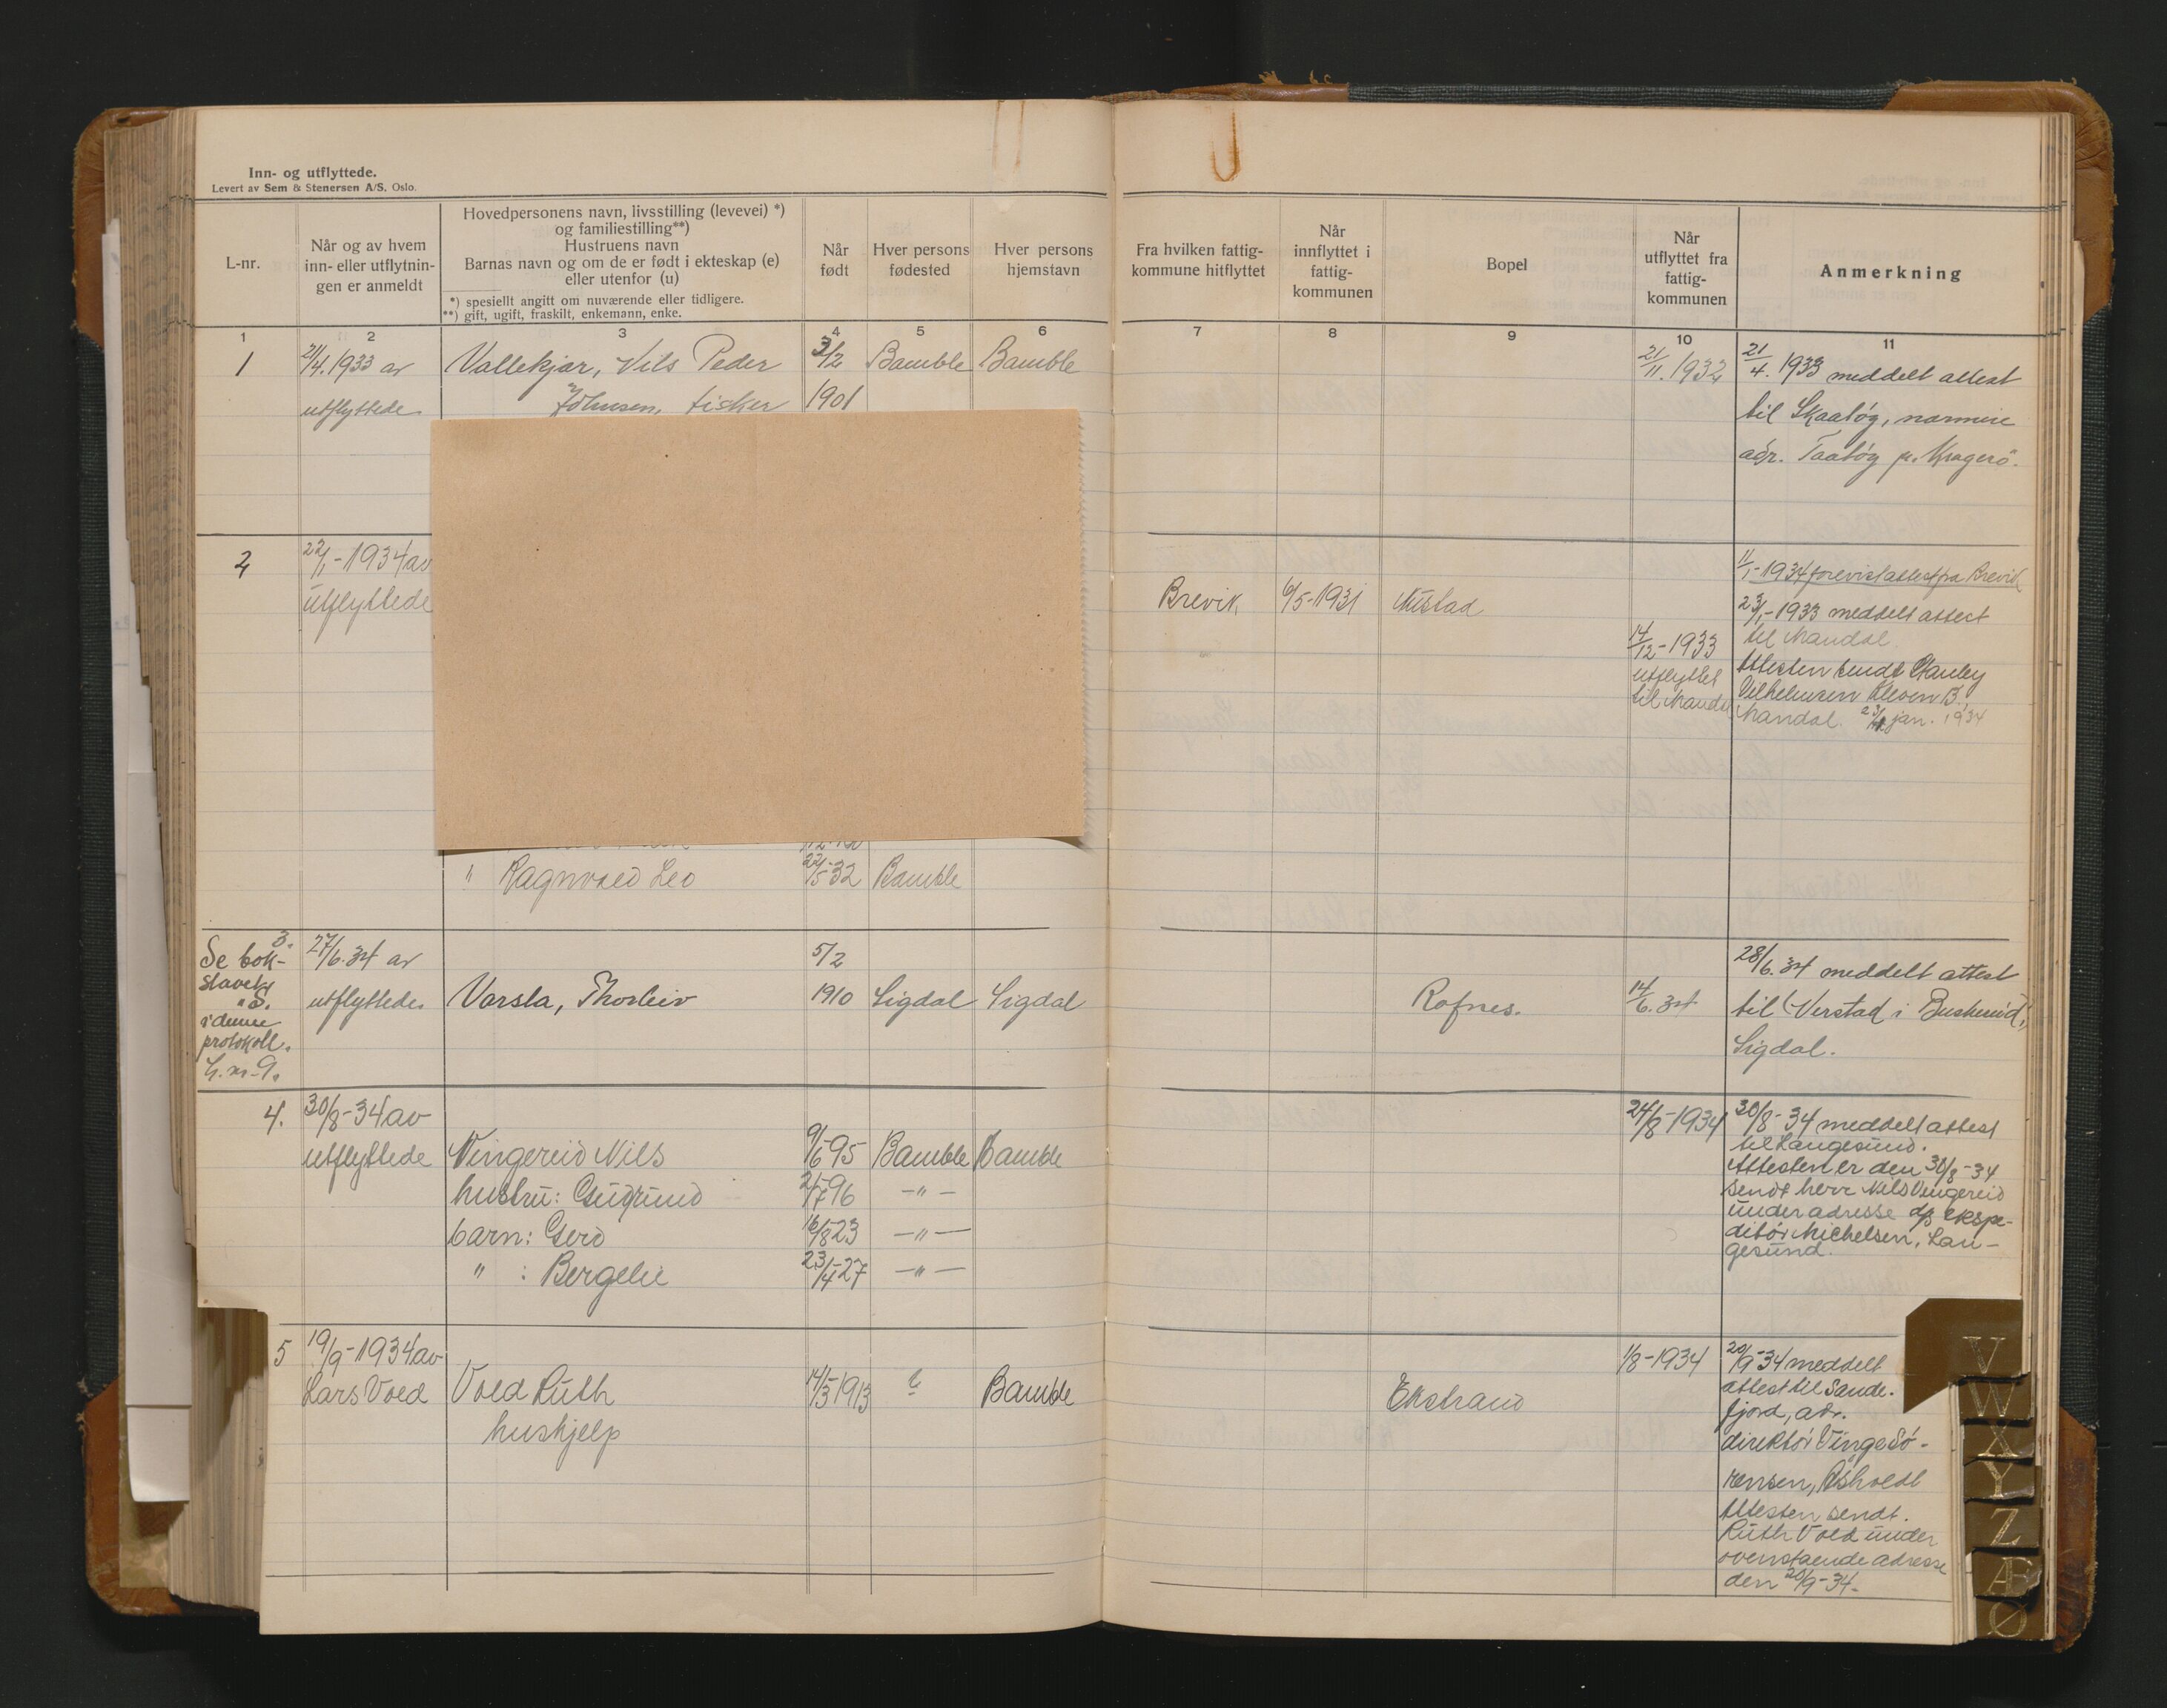 Inn- og utflyttede.
Levert av Sem & Stenersen A/S. Oslo.
L-nr.
Når og av hvem
inn- eller utflytnin-
gen er anmeldt
Hovedpersonens navn, livsstilling (levevei) *)
og familiestilling**)
Hustruens navn
Barnas navn og om de er født i ekteskap (e)
eller utenfor (u)
*) spesiellt angitt om nuværende eller tidligere.
**) gift, ugift, fraskilt, enkemann, enke.
Når
født
Hver persons
fødested
Hver persons
hjemstavn
Fra hvilken fattig-
kommune hitflyttet
Når
innflyttet i
fattig-
kommunen
Bopel
Når
utflyttet fra
fattig-
kommunen
Anmerkning
1 2 3 4 5 6 7 8 9 10 11
1 21/4. 1933 av Vallekjær, Nils Peder 3/2 Bamble Bamble 21/11. 1932 21/4. 1933 meddelt attest
utflyttede. Johnsen, fisker 1901 til Skaatöy, nærmere
adr. Taatöy pr. Kragerö.
2 22/1-1934 av 11/1-1934 forevist attest fra Brevik
utflyttede Brevik 6/5-1931 Nustad 23/1-1933 meddelt attest
14/12-1933 til Mandal
utflyttet Attesten sendt Stanley
til Mandal Vilhelmsen Kleven B.,
Mandal. 23/ jan. 1934
" Ragnvald Leo 22/5-32 Bamble
3.
Se bok- 27/6.34 av 5/2 28/6.34 meddelt attest
staven
"S. utflyttede. Vorsla, Thorleiv 1910 Sigdal Sigdal Rafnes. 14/6.34 til (Verstad i Buskerud),
i denne
protokoll. Sigdal.
L.nr. 9.
4. 30/8-34 av 24/8-1934 30/8-34 meddelt attest
til Langesund.
utflyttede Vingereid Nils 9/6-95 Bamble Bamble Attesten er den 30/8-34
hustru: Gudrund 2/7-96 -"- sendt herr Nils Vingereid
under adresse d/s ekspe-
barn: Gerd 16/8-23 -"- ditör Michelsen, Lan-
gesund.
" : Bergelie 23/4-27 -"-
5 19/9-1934 av 1/8-1934 20/9-34 meddelt
Lars Vold Vold Ruth 14/3-1913 Bamble Ekstrand attest til Sande-
fjord, adr.
huskjelp direktör Vinge Sö-
rensen, Åsholdt
Attesten sendt.
Ruth Vold under
ovenstaende adresse
den 20/9-34.
V
W
X
Y
Z
Æ
Ø